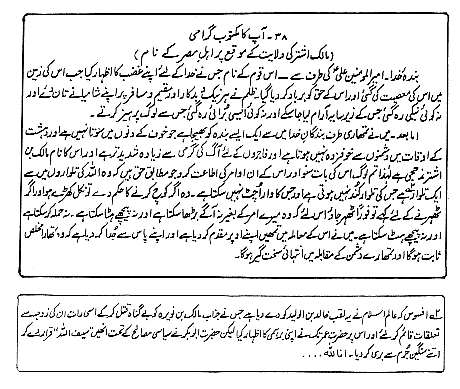 ۳۸۔ آپ کا مکتوب گرامی
(مالک اشتر کی ولایت کے موقع پر اہل مصر کے نام)
بندۂ خدا۔ امیرالمومنین علیؑ کی طرف سے۔ اس قوم کے نام جس نے خدا کے لئے اپنے غضب کا اظہار کیا جب اس کی زمین
میں اس کی معصیت کی گئی اور اس کے حق کو برباد کر دیا گیا۔ ظلم نے ہر نیک و بدکار اور مقیم و مسافر پر اپنے شامیانے تان لئے اور
نہ کوئی نیکی رہ گئی جس کے زیر سایہ آرام لیا جاسکے اور نہ کوئی ایسی برائی رہ گئی جس سے لوگ پرہیز کرتے۔
اما بعد۔ میں نے تمھاری طرف بندگان خدا میں سے ایک ایسے بندہ کو بھیجا ہے جو خوف کے دنوں میں سوتا نہیں ہے اور دہشت
کے اوقات میں دشمنوں سے خوفزدہ نہیں ہوتا ہے اور فاجروں کے لئے آگ کی گرمی سے زیادہ شدید تر ہے اور اس کا نام مالک بن
اشتر مذحجی ہے لہٰذا تم لوگ اس کی بات سنو اور اس کے ان اوامر کی اطاعت کرو جو مطابق حق ہیں کہ وہ اللہ کی تلواروں میں سے
ایک تلوار ہے جس کی تلوار کند نہیں ہوتی ہے اور جس کا وار اچٹ نہیں سکتا ہے۔ وہ اگر کوچ کرنے کا حکم دے تو نکل کھڑے ہو اور اگر
ٹھہرنے کے لئے کہے تو فوراً ٹھہر جاؤ اس لئے کہ وہ میرے امر کے بغیر نہ آگے بڑھا سکتا ہے اور نہ پیچھے ہٹا سکتا ہے۔ نہ حملہ کر سکتا ہے
اور نہ پیچھے ہٹ سکتا ہے۔ میں نے اس کے معاملہ میں تمھیں اپنے اوپر مقدم کر دیا ہے اور اپنے پاس سے جدا کر دیا ہے کہ وہ تمھارا مخلص
ثابت ہوگا اور تمھارے دشمن کے مقابلہ میں انتہائی سخت گیر ہوگا۔
افسوس کہ عالم اسلام نے یہ لقب خالد بن الولید کو دے دیا ہے جس نے جناب مالک بن نویرہ کو بے گناہ قتل کر کے اسی رات ان کی زوجہ سے
تعلقات قائم کر لئے اور اس پر حضرت عمر تک نے اپنی برہمی کا اظہار کیا لیکن حضرت ابوبکر نے سیاسی مصالح کے تحت انھیں "سیف اللہ" قرار دے کر
اتنے سنگین جرم سے بری کر دیا۔ انا للہ ....